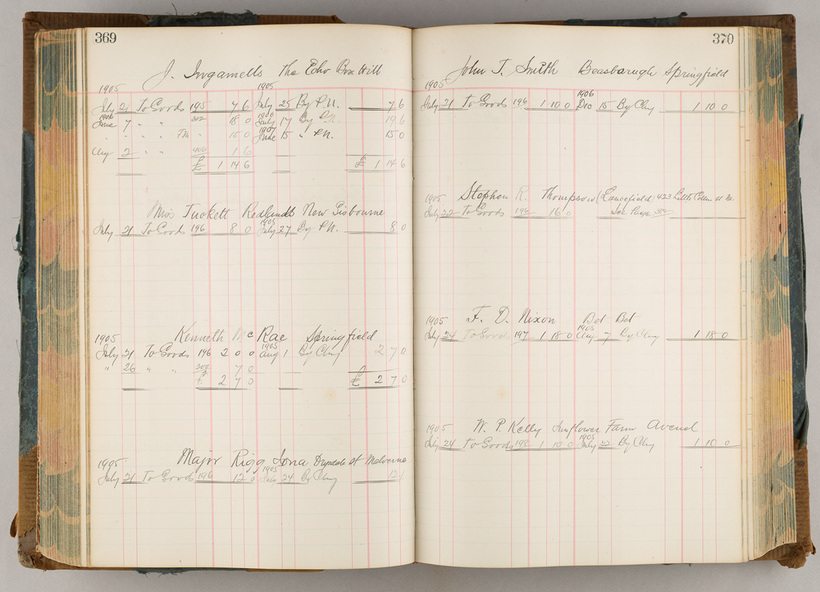 369
J. Ingamells The Echo Box Hill
1905 1905
July 21 To Goods 195 7 6 July 25 By P.N. 7 6
1906 June 7 " " 302 18 0 1906 July 17 By P.N. 19 6
" " 15 0 1907 June 15 " P.N. 15 0
Aug 2 " " 1 6
£ 1 14 6 £ 1 14 6
Miss Tuckett Redlands New Gisbourne
July 21 To Goods 196 8 0 1905 July 27 By P.N. 8 0
1905 Kenneth McRae Springfield
July 21 To Goods 196 2 0 0 1905 Aug 1 By Chq 2 7 0
" 26 " " 7 0
£ 2 7 0 £ 2 7 0
1905 Major Rigg Iona St Malvern
July 21 To Goods 196 12 0 1905 24 By Chq
370
John T. Smith Springfield
1905
July 21 To Goods 196 1 10 0 1906 Dec 15 By Chq 1 10 0
1905 Stephen R. Thompson (Lancefield) 423 Little
July 22 To Goods 16 0 See Page
1905 F. D. Nixon Dot Dot
July 24 To Goods 197 1 18 0 1905 Aug 7 By Chq 1 18 0
1905 W. P. Kelly Sunflower Farm Avenel
July 24 To Goods 198 1 10 0 1905 July 22 By Chq 1 10 0